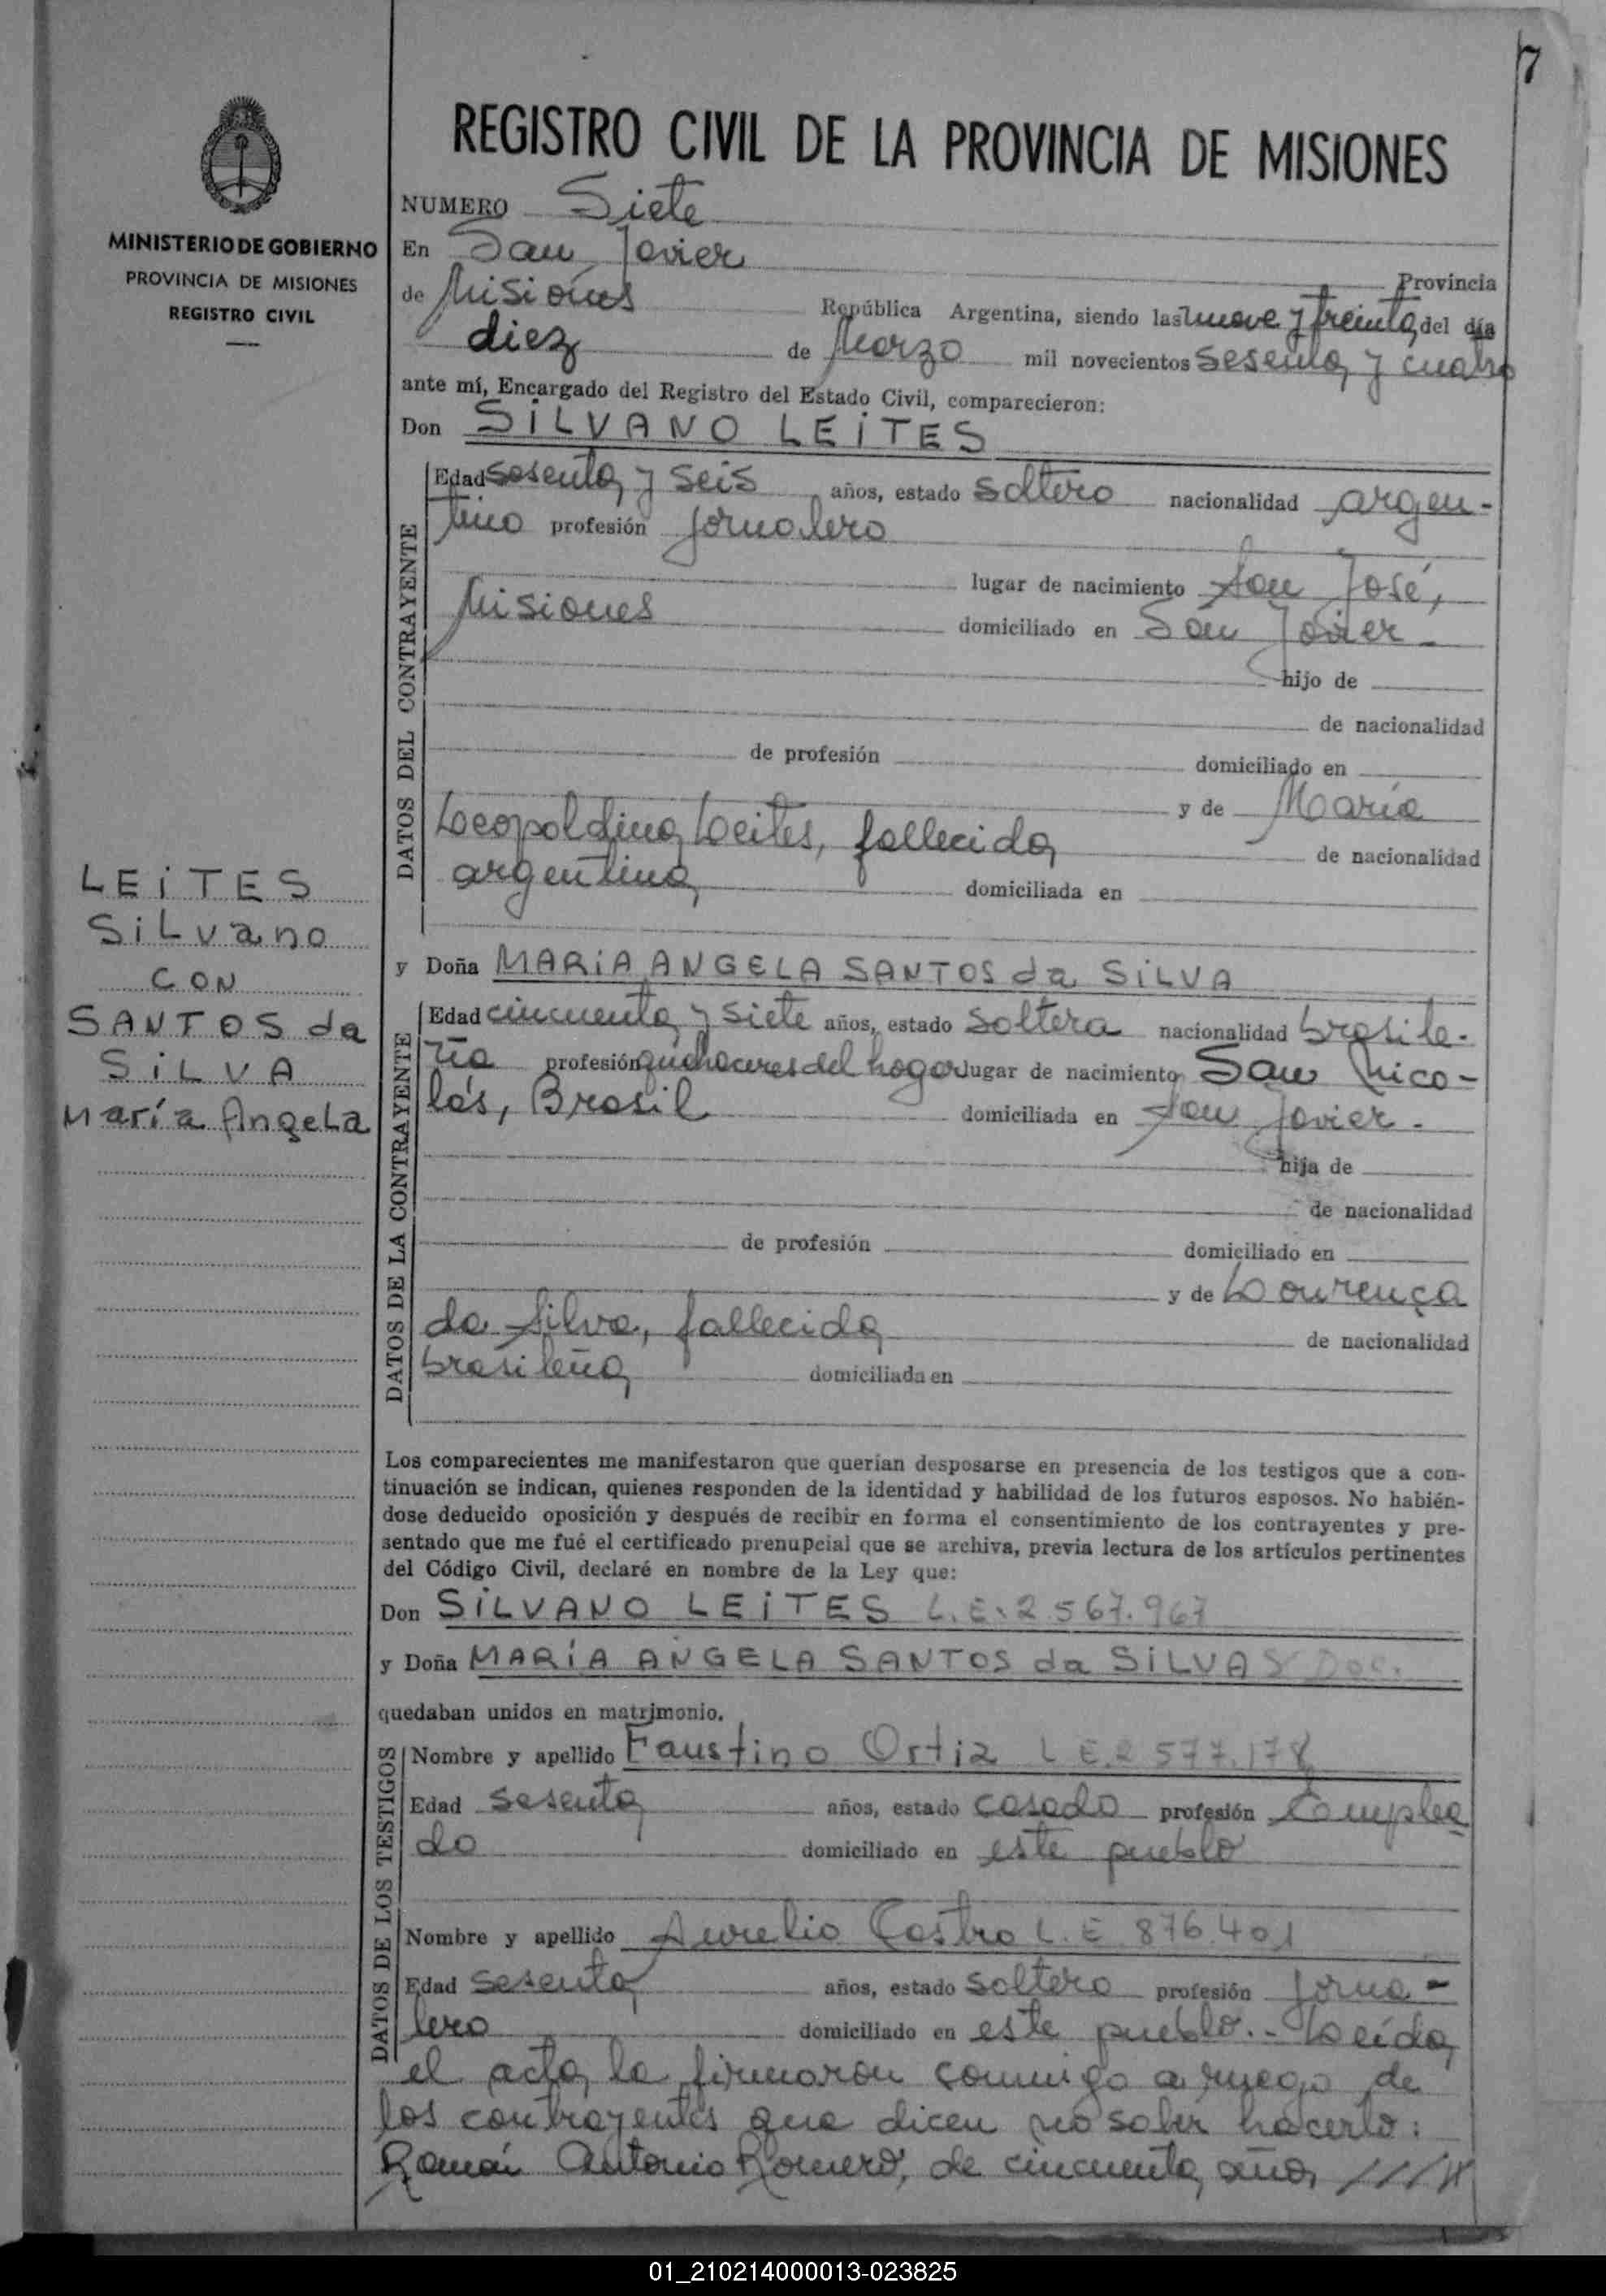 7
REGISTRO CIVIL DE LA PROVINCIA DE MISIONES
MINISTERIO DE GOBIERNO
PROVINCIA DE MISIONES
REGISTRO CIVIL
NUMERO Siete
En San Javier Provincia
de Misiones República Argentina, siendo las nueve y treinta del día
diez de Marzo mil novecientos sesenta y cuatro
ante mí, Encargado del Registro del Estado Civil, comparecieron:
Don SILVANO LEITES
DATOS DEL CONTRAYENTE
Edad sesenta y seis años, estado soltero nacionalidad argen-
tino profesión jornalero
lugar de nacimiento San José,
Misiones domiciliado en San Javier -
hijo de
de nacionalidad
de profesión domiciliado en
y de María
Leopoldina Leites, fallecida de nacionalidad
argentina domiciliada en
LEITES
Silvano
CON
SANTOS da
SILVA
María Angela
y Doña MARIA ANGELA SANTOS da SILVA
DATOS DE LA CONTRAYENTE
Edad cincuenta y siete años, estado soltera nacionalidad brasile-
ña profesión quehaceres del hogar lugar de nacimiento San Nico-
lás, Brasil domiciliada en San Javier -
hija de
de nacionalidad
de profesión domiciliado en
y de Lourença
da Silva, fallecida de nacionalidad
brasileña domiciliada en
Los comparecientes me manifestaron que querian desposarse en presencia de los testigos que a con-
tinuación se indican, quienes responden de la identidad y habilidad de los futuros esposos. No habién-
dose deducido oposición y después de recibir en forma el consentimiento de los contrayentes y pre-
sentado que me fué el certificado prenupcial que se archiva, previa lectura de los artículos pertinentes
del Código Civil, declaré en nombre de la Ley que:
Don SILVANO LEITES L.E. 2.567.967
y Doña MARÍA ANGELA SANTOS da SILVA S/ Doc.
quedaban unidos en matrimonio.
DATOS DE LOS TESTIGOS
Nombre y apellido Faustino Ortiz L E. 2 577.178
Edad sesenta años, estado casado profesión Emplea
do domiciliado en este pueblo
Nombre y apellido Aurelio Castro L. E 876.401
Edad sesenta años, estado soltero profesión jorna-
lero domiciliado en este pueblo.- Leída
el acta la firmaron conmigo a ruego de
los contrayentes que dicen no saber hacerlo:
Ramón Antonio Romero, de cincuenta años ////
01_210214000013-023825